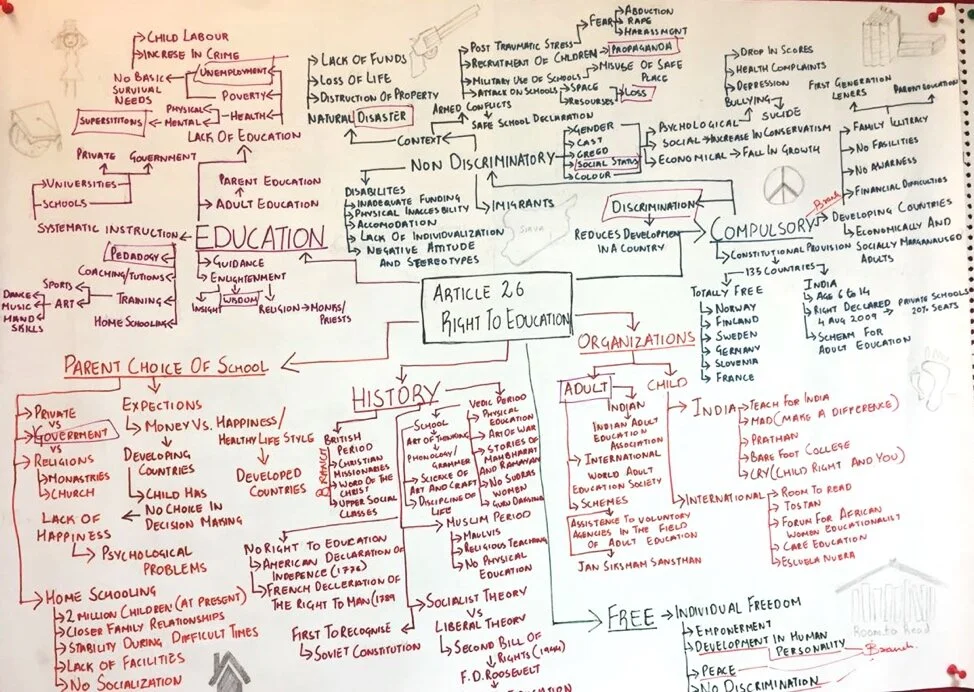 CHILD LABOUR
INCRESE IN CRIME
NO BASIC
SURVIVAL
NEEDS
UNEMPLOYMENT
POVERTY
SUPERSTITIONS
PHYSICAL
MENTAL
HEALTH
LACK OF EDUCATION
PRIVATE GOVERNMENT
UNIVERSITIES
SCHOOLS
PARENT EDUCATION
ADULT EDUCATION
SYSTEMATIC INSTRUCTION
EDUCATION
PEDADOGY
COACHING/TUTIONS
SPORTS
DANCE
MUSIC
HAND
SKILLS
ART
TRAINING
HOME SCHOOLING
GUIDANCE
ENLIGHTENMENT
INSIGHT
WISDOM
RELIGION → MONKS/
PRIESTS
LACK OF FUNDS
LOSS OF LIFE
DISTRUCTION OF PROPERTY
NATURAL DISASTER
CONTEXT
ARMED CONFLICTS
POST TRAUMATIC STRESS
FEAR
ABDUCTION
RAPE
HARASSMENT
RECRUITMENT OF CHLDREN
PROPAGANDA
MILITARY USE OF SCHOOLS
MISUSE OF SAFE
PLACE
ATTACK ON SCHOOLS
SPACE
RESOURSES
LOSS
SAFE SCHOOL DECLARATION
NON DISCRIMINATORY
GENDER
CAST
CREED
SOCIAL STATUS
COLOUR
PSYCHOLOGICAL
SOCIAL → INCREASE IN CONSERVATISM
ECONOMICAL → FALL IN GROWTH
DROP IN SCORES
HEALTH COMPLAINTS
DEPRESSION
BULLYING
SUCIDE
DISABILITES
INADEQUATE FUNDING
PHYSICAL INACCESIBILITY
ACCOMODATION
LACK OF INDIVIDUALIZATION
NEGATIVE ATTITUDE
AND STEREOTYPES
IMIGRANTS
SYRIA
DISCRIMINATION
REDUCES DEVELOPMENT
IN A COUNTRY
COMPULSORY
Branch
FIRST GENERATION
LENERS
PARENT EDUCATION
FAMILY ILLITRACY
NO FACILITIES
NO AWARNESS
FINANCIAL DIFFICULTIES
DEVELOPING COUNTRIES
ECONOMICALLY AND
SOCIALLY MARGANALISED
ADULTS
CONSTITUTIONAL PROVISION
135 COUNTRIES
TOTALLY FREE
NORWAY
FINLAND
SWEDEN
GERMANY
SLOVENIA
FRANCE
INDIA
AGE 6 to 14
RIGHT DECLARED
4 AUG 2009
PRIVATE SCHOOLS
20% SEATS
SCHEAM FOR
ADULT EDUCATION
ARTICLE 26
RIGHT TO EDUCATION
PARENT CHOICE OF SCHOOL
PRIVATE
VS
GOVERRMENT
VS
RELIGIONS
MONASTRIES
CHURCH
EXPECTIONS
MONEY VS. HAPPINESS/
HEALTHY LIFE STYLE
DEVELOPING
COUNTRIES
DEVELOPED
COUNTRIES
CHILD HAS
NO CHOICE IN
DECISION MAKING
LACK OF
HAPPINESS
PSYCHOLOGICAL
PROBLEMS
HOME SCHOOLING
2 MILLION CHILDREN (AT PRESENT)
CLOSER FAMILY RELATIONSHIPS
STABILITY DURING DIFFICULT TIMES
LACK OF FACILITIES
NO SOCIALIZATION
HISTORY
BRANCH
BRITISH
PERIOD
CHRISTIAN
MISSIONARIES
WORD OF THE
CHRIST
UPPER SOCIAL
CLASSES
SCHOOL
ART OF THINKING
PHONOLOGY/
GRAMMER
SCIENCE OF
ART AND CRAFT
DISCIPLINE OF
LIFE
VEDIC PERIOD
PHYSICAL
EDUCATION
ART OF WAR
STORIES OF
MAHABHARAT
AND RAMAYAN
NO SUDRAS
WOMEN
GURU DAKSHINA
MUSLIM PERIOD
MAULVIS
RELIGIOUS TEACHING
NO PHYSICAL
EDUCATION
NO RIGHT TO EDUCATION
AMERICAN DECLARATION OF
INDEPENCE (1776)
FRENCH DECLERATION OF
THE RIGHT TO MAN (1789
FIRST TO RECOGNISE
SOVIET CONSTITUTION
SOCIALIST THEORY
VS
LIBERAL THEORY
SECOND BILL OF
RIGHTS (1944)
F.D. ROOSEVELT
ORGANIZATIONS
ADULT
CHILD
INDIAN
INDIAN ADULT
EDUCATION
ASSOCIATION
INTERNATIONAL
WORLD ADULT
EDUCATION SOCIETY
SCHEMES
ASSISTENCE TO VOLUNTARY
AGENCIES IN THE FIELD
OF ADULT EDUCATION
JAN SIKSHAM SANSTHAN
INDIA
TEACH FOR INDIA
MAD (MAKE A DIFFERENCE)
PRATHAN
BARE FOOT COLLEGE
CRY (CHILD RIGHT AND YOU)
INTERNATIONAL
ROOM TO READ
TOSTAN
FORUM FOR AFRICAN
WOMEN EDUCATIONALIST
CARE EDUCATION
ESCUELA NUERA
FREE
INDIVIDUAL FREEDOM
EMPOWERMENT
DEVELOPMENT IN HUMAN
PERSONALITY
Branch
PEACE
NO DISCRIMINATION
Room to Read